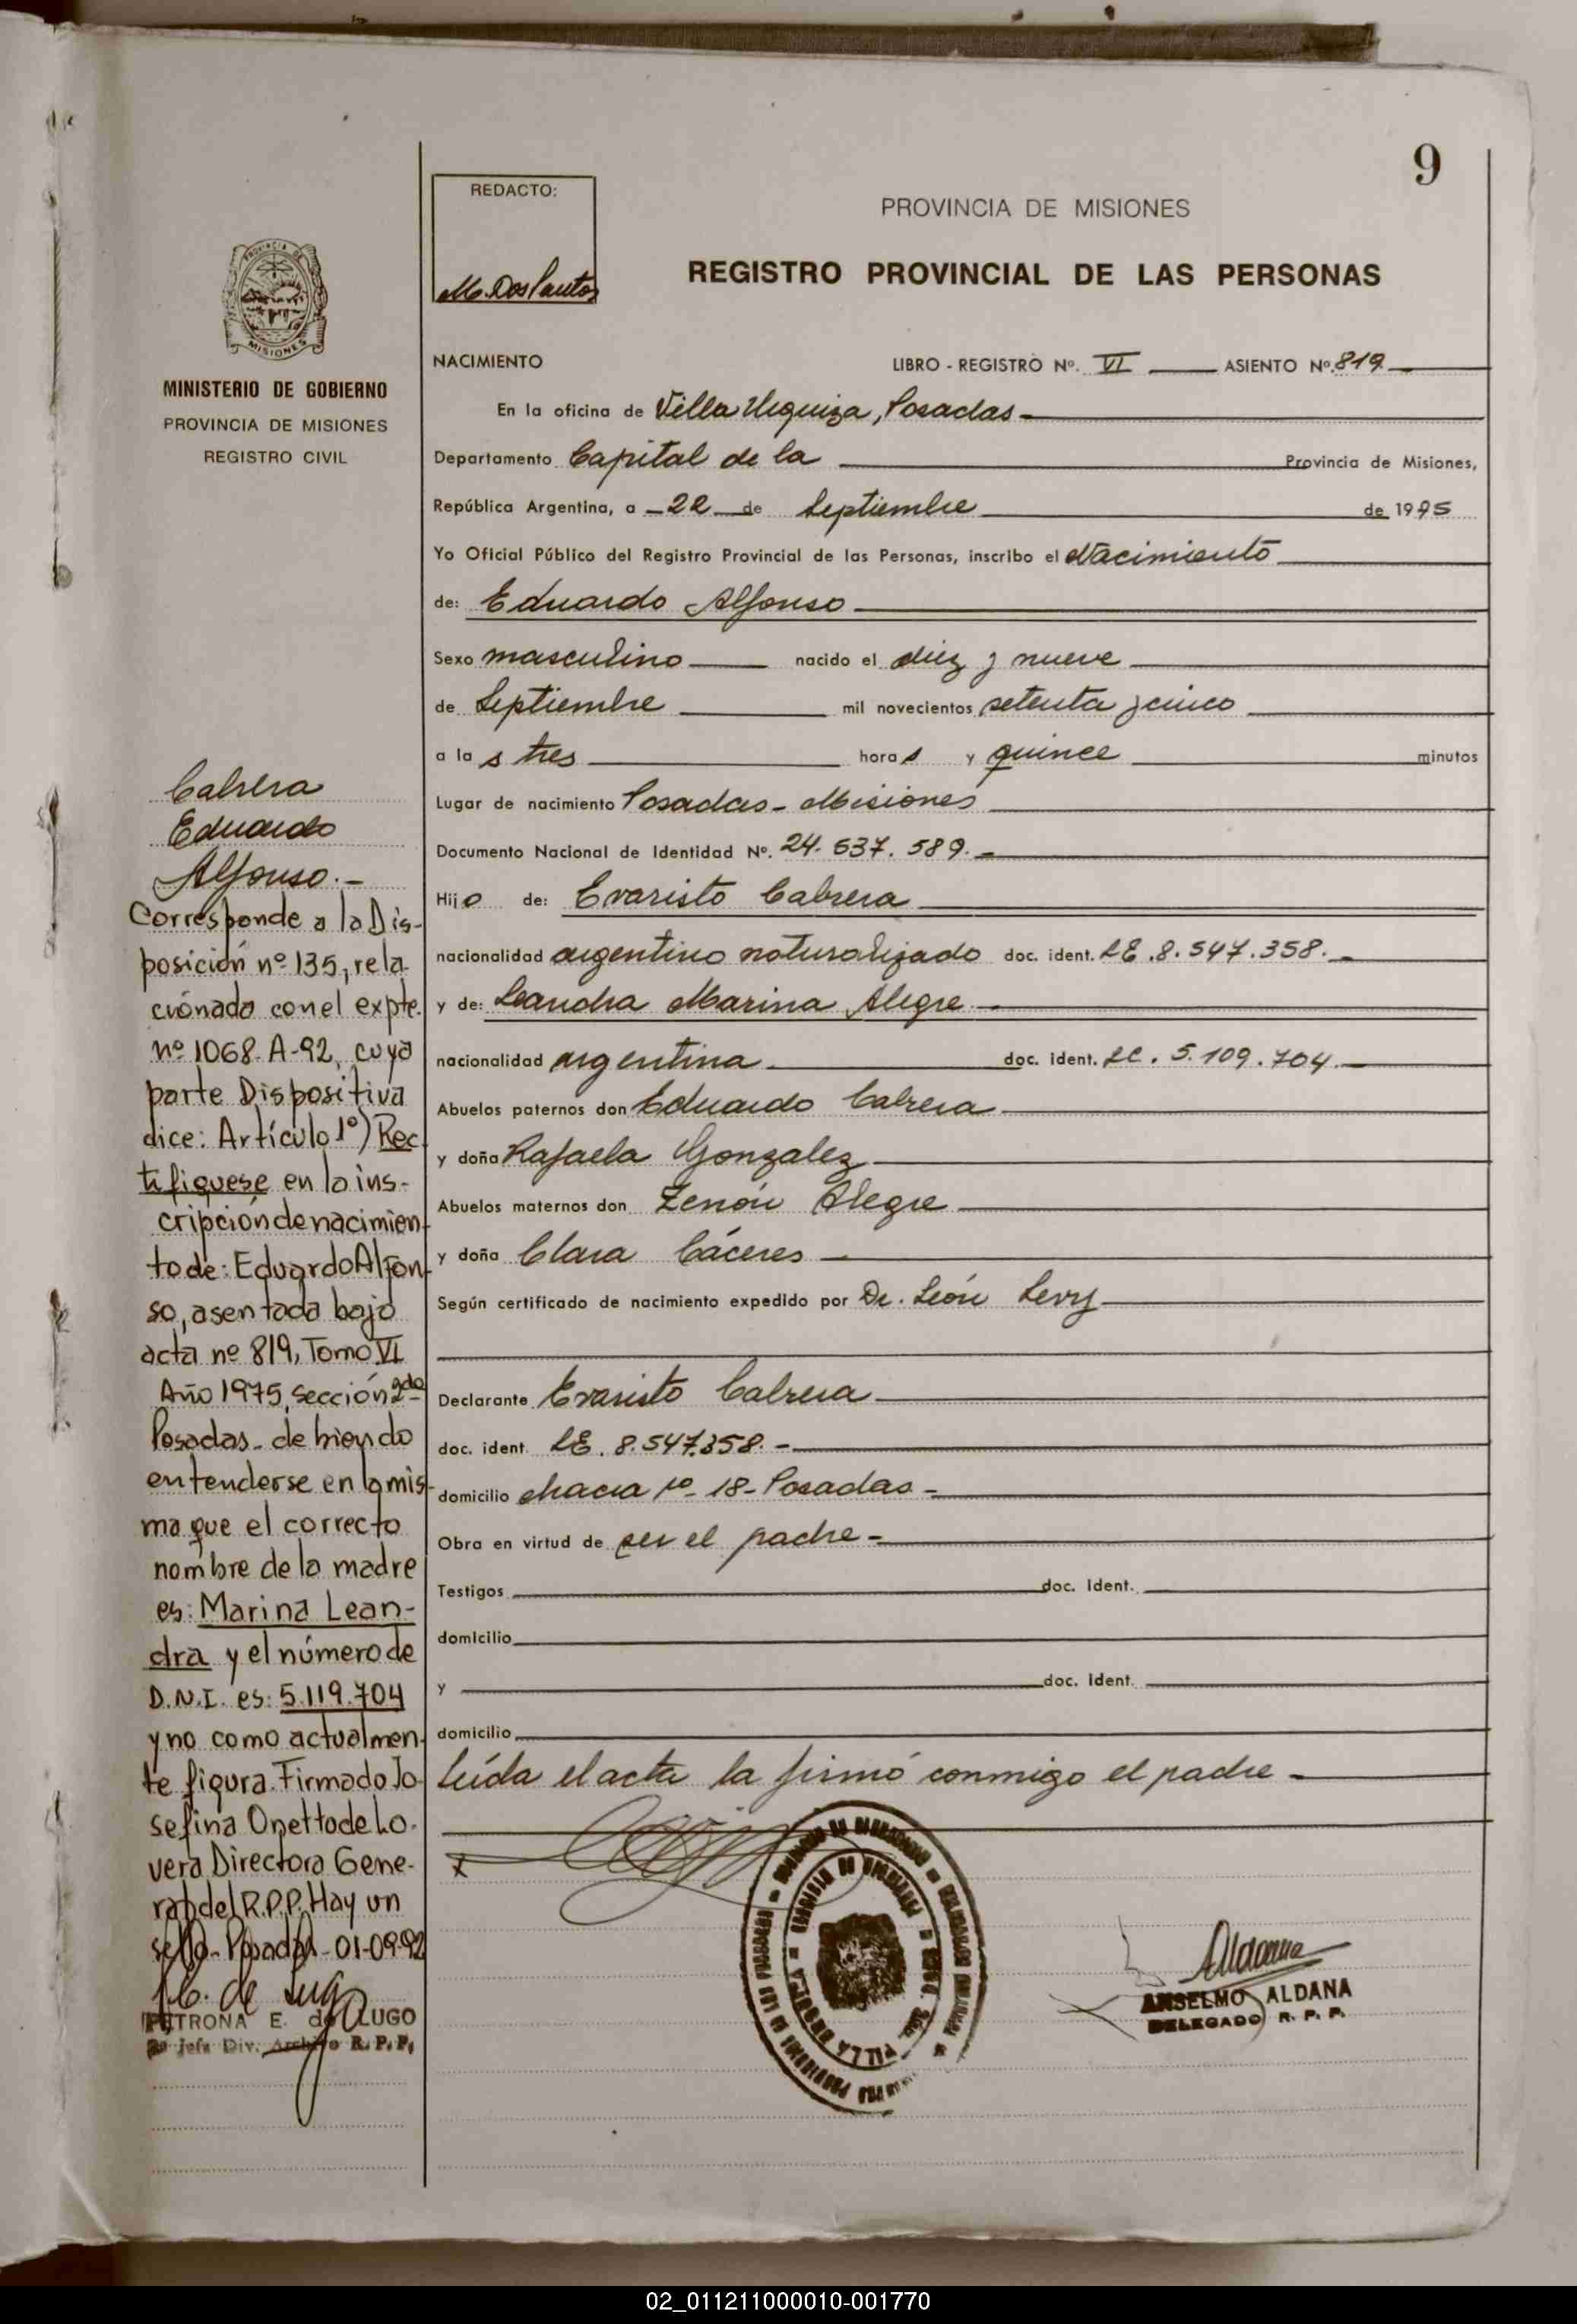 9
REDACTO:
M. Dos Santos
PROVINCIA DE MISIONES
REGISTRO PROVINCIAL DE LAS PERSONAS
MISIONES
MINISTERIO DE GOBIERNO
PROVINCIA DE MISIONES
REGISTRO CIVIL
NACIMIENTO LIBRO - REGISTRO Nº. VI ASIENTO Nº. 819
En la oficina de Villa Urquiza, Posadas
Departamento Capital de la Provincia de Misiones,
República Argentina, a 22 de Septiembre de 1975
Yo Oficial Público del Registro Provincial de las Personas, inscribo el Nacimiento
de: Eduardo Alfonso
Sexo masculino nacido el diez y nueve
de Septiembre mil novecientos setenta y cinco
a las tres horas y quince minutos
Lugar de nacimiento Posadas - Misiones
Documento Nacional de Identidad Nº. 24.537.589.-
Hijo de: Evaristo Cabrera
nacionalidad argentino naturalizado doc. ident. LE.8.547.358.-
y de: Leandra Marina Alegre
nacionalidad argentina doc. ident. LC. 5.109.704.-
Abuelos paternos don Eduardo Cabrera
y doña Rafaela Gonzalez
Abuelos maternos don Zenón Alegre
y doña Clara Cáceres
Según certificado de nacimiento expedido por Dr. León Levy
Declarante Evaristo Cabrera
doc. ident. LE. 8.547.358.-
domicilio chacra nº 18 - Posadas -
Obra en virtud de ser el padre -
Testigos doc. Ident.
domicilio
y doc. Ident.
domicilio
Leída el acta la firmó conmigo el padre -
Aldana
ANSELMO ALDANA
DELEGADO R. P. P.
VILLA URQUIZA
Cabrera
Eduardo
Alfonso.-
Corresponde a la Dis-
posición nº 135, rela-
cionada con el expte.
nº 1068-A-92, cuya
parte Dispositiva
dice: Artículo 1º) Rec-
tifíquese en la ins-
cripción de nacimien-
to de: Eduardo Alfon-
so, asentada bajo
acta nº 819, Tomo VI
Año 1975, sección 2da
Posadas - debiendo
entenderse en la mis-
ma que el correcto
nombre de la madre
es: Marina Lean-
dra y el número de
D.N.I. es: 5.119.704
y no como actualmen-
te figura. Firmado Jo-
sefina Onetto de Lo-
vera Directora Gene-
ral del R.P.P. Hay un
sello - Posadas - 01-09-92
PETRONA E. de LUGO
Jefe Div. Archivo R. P. P.
02_011211000010-001770